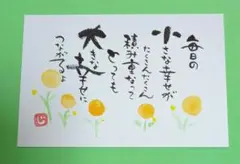 毎日の
小さな幸せが
たくさんたくさん
積み重なって
とっても
大きな幸せに
つながるよ